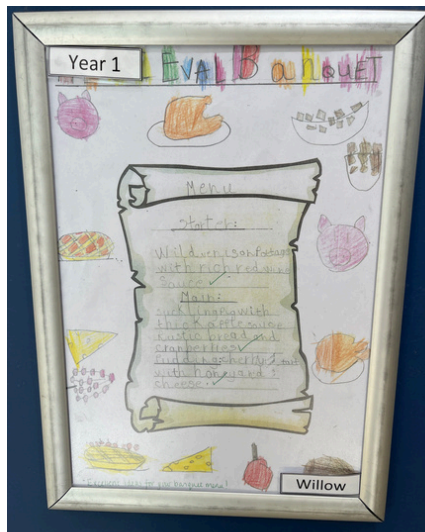 Year 1
EVAL BANQUET
Menu
Starter:
Wild venison Pottage
with rich red wine
sauce
Main:
suckling pig with
thick apple sauce
rustic bread and
cranberries
with honey and
cheese.
Willow